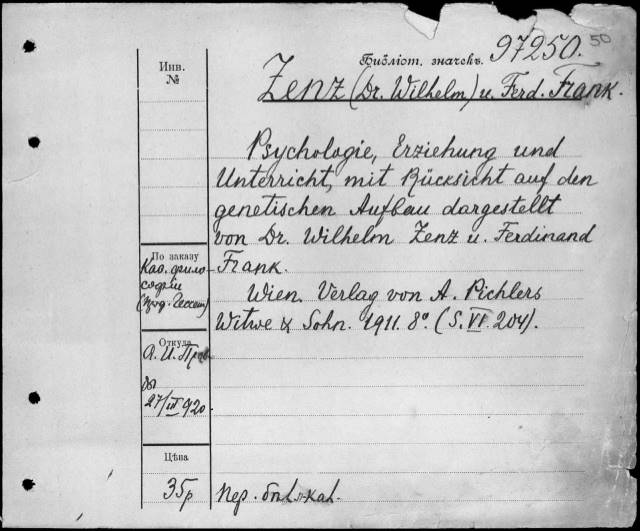 50
Библіот. значекъ. 97250.
Инв.
№
Zenz (Dr. Wilhelm) u. Ferd. Frank.
Psychologie, Erziehung und
Unterricht, mit Rücksicht auf den
genetischen Aufbau dargestellt
von Dr. Wilhelm Zenz u. Ferdinand
Frank.
Wien. Verlag von A. Pichlers
Witwe & Sohn. 1911. 8º. (S. VI. 204).
По заказу
Каѳ. фило
софіи
(проф. Гессен)
Откуда
А. И. Прав
ды
27/III 920.
Цѣна
35р
Пер.